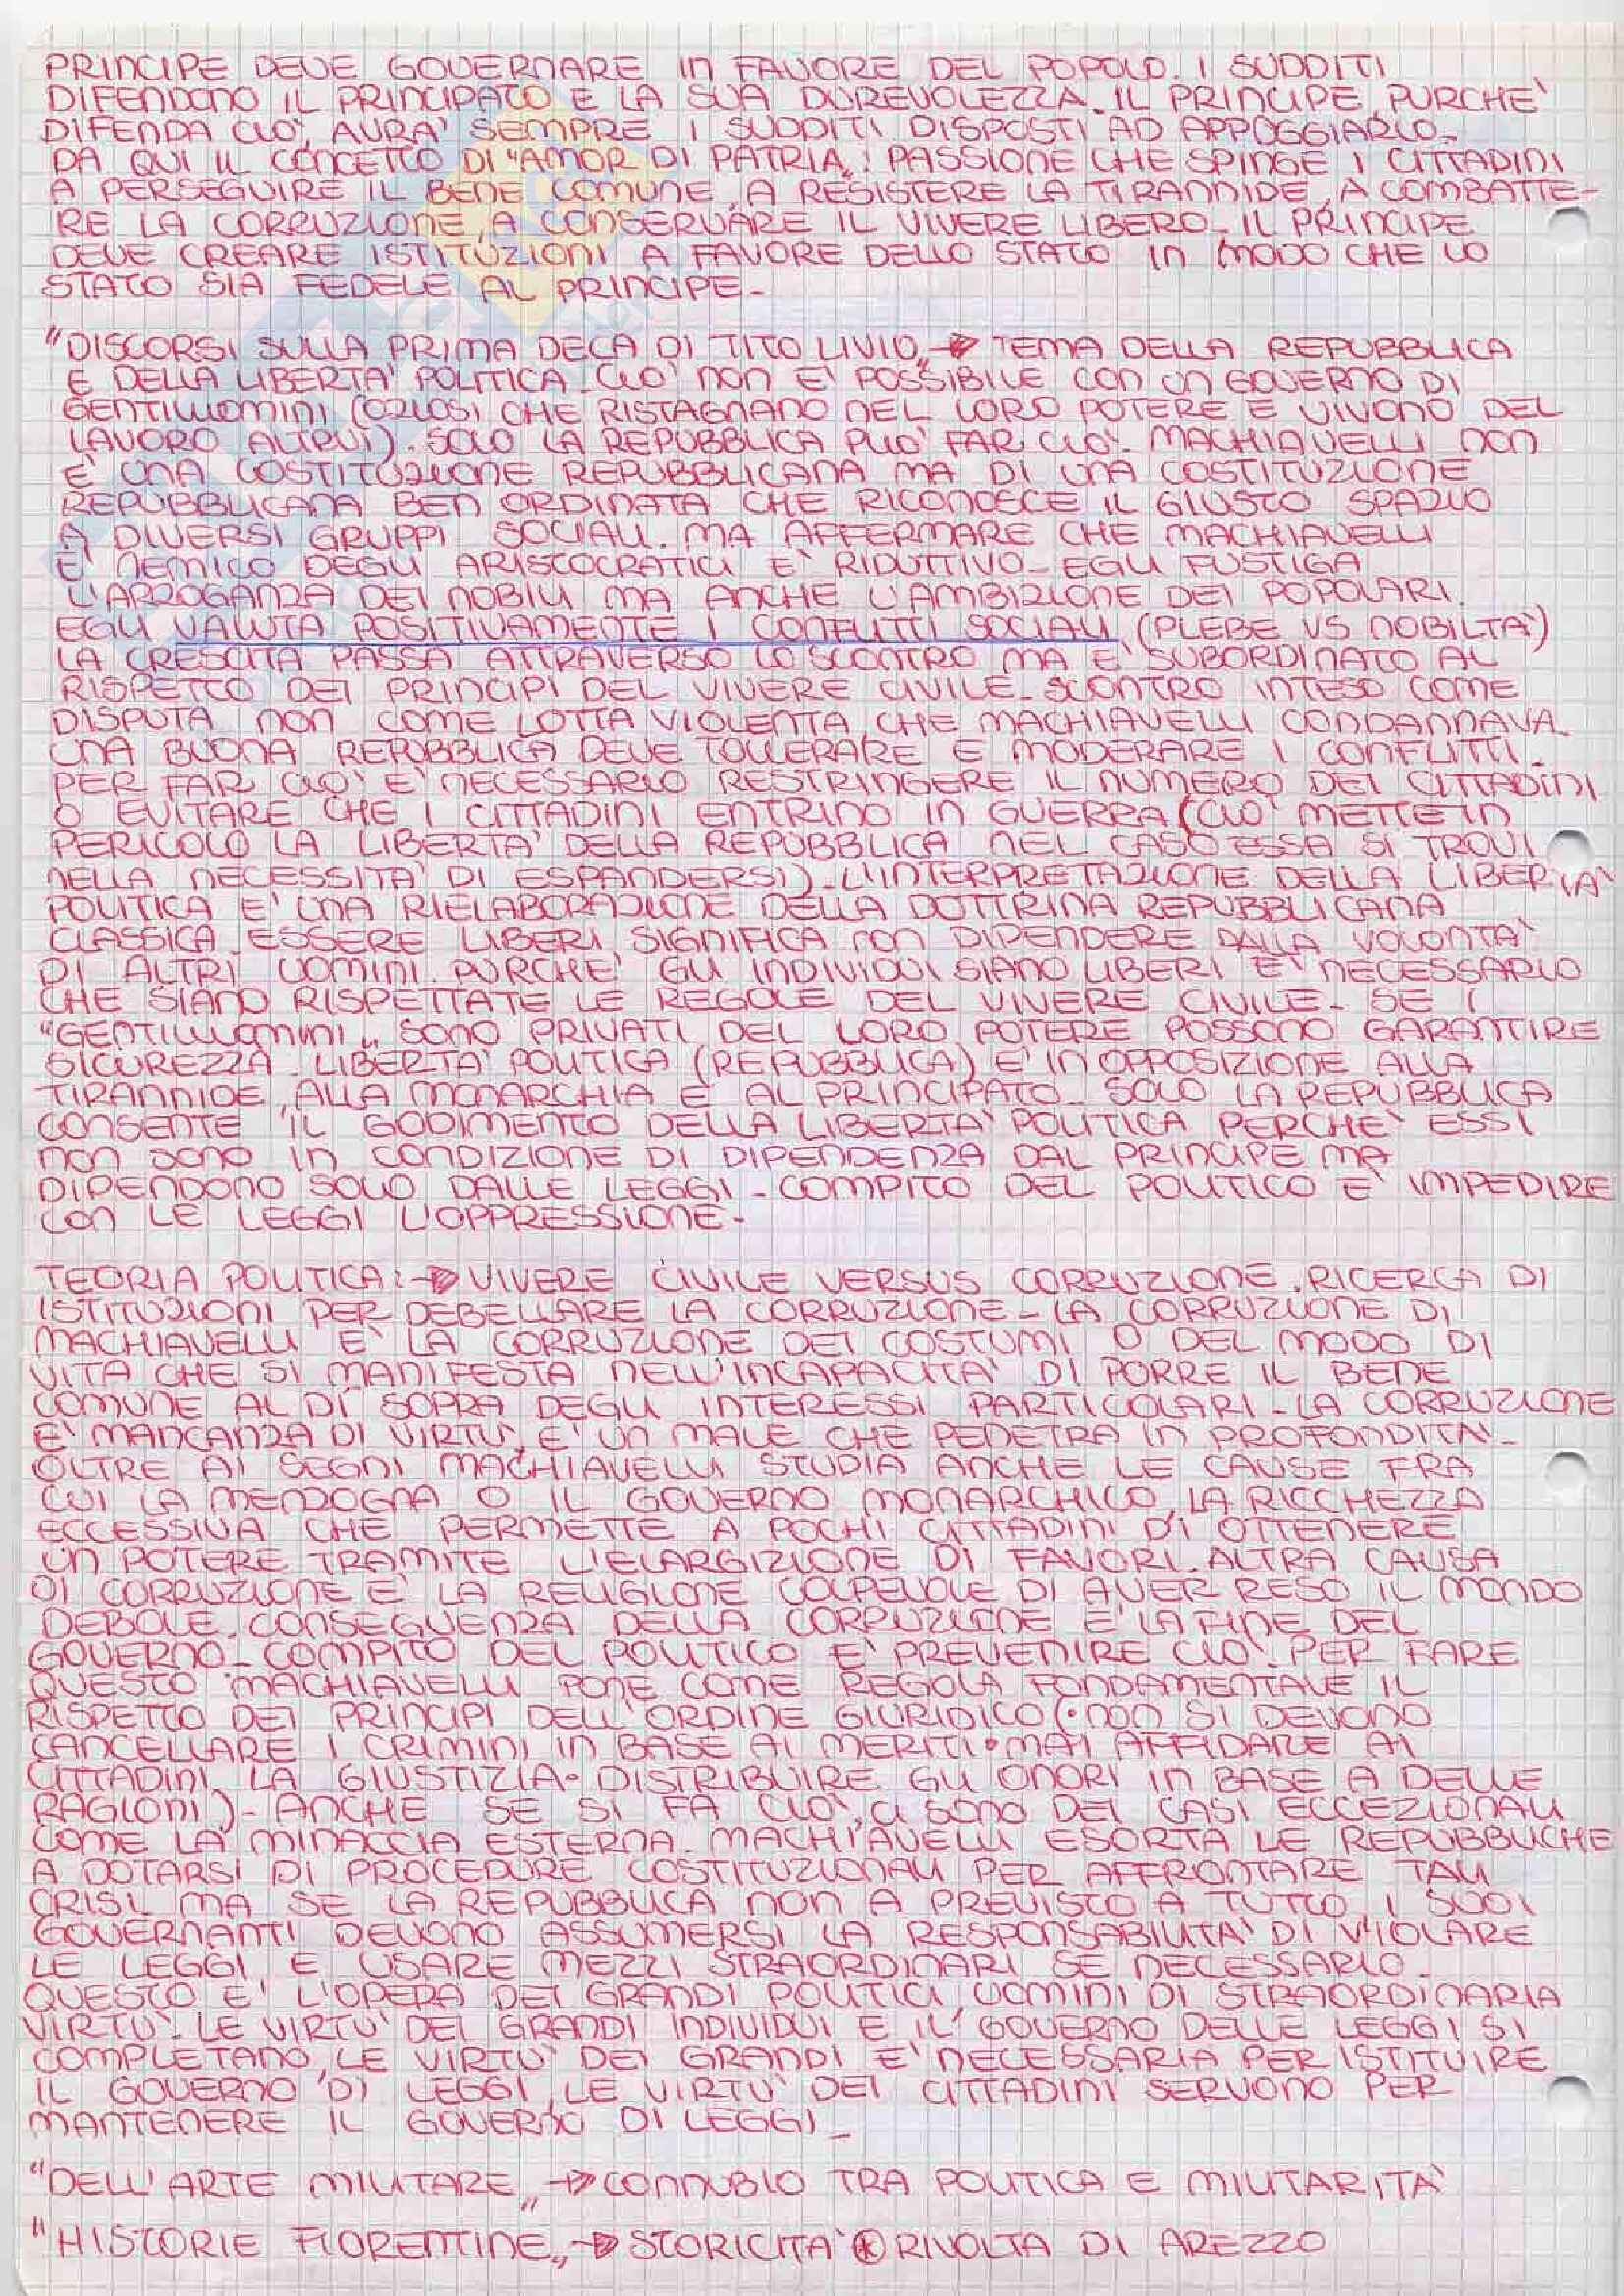 PRINCIPE DEVE GOVERNARE IN FAVORE DEL POPOLO. I SUDDITI
DIFENDONO IL PRINCIPATO E LA SUA DUREVOLEZZA. IL PRINCIPE, PURCHE'
DIFENDA CIO', AVRA' SEMPRE I SUDDITI DISPOSTI AD APPOGGIARLO.
DA QUI IL CONCETTO DI "AMOR DI PATRIA": PASSIONE CHE SPINGE I CITTADINI
A PERSEGUIRE IL BENE COMUNE, A RESISTERE LA TIRANNIDE, A COMBATTE-
RE LA CORRUZIONE, A CONSERVARE IL VIVERE LIBERO. IL PRINCIPE
DEVE CREARE ISTITUZIONI A FAVORE DELLO STATO IN MODO CHE LO
STATO SIA FEDELE AL PRINCIPE.
"DISCORSI SULLA PRIMA DECA DI TITO LIVIO" → TEMA DELLA REPUBBLICA
E DELLA LIBERTA' POLITICA. CIO' NON E' POSSIBILE CON UN GOVERNO DI
GENTILUOMINI (OZIOSI CHE RISTAGNANO NEL LORO POTERE E VIVONO DEL
LAVORO ALTRUI). SOLO LA REPUBBLICA PUO' FAR CIO'. MACHIAVELLI NON
E' UNA COSTITUZIONE REPUBBLICANA MA DI UNA COSTITUZIONE
REPUBBLICANA BEN ORDINATA CHE RICONOSCE IL GIUSTO SPAZIO
A DIVERSI GRUPPI SOCIALI. MA AFFERMARE CHE MACHIAVELLI
E' NEMICO DEGLI ARISTOCRATICI E' RIDUTTIVO. EGLI FUSTIGA
L'ARROGANZA DEI NOBILI MA ANCHE L'AMBIZIONE DEI POPOLARI.
EGLI VALUTA POSITIVAMENTE I CONFLITTI SOCIALI (PLEBE VS NOBILTA')
LA CRESCITA PASSA ATTRAVERSO LO SCONTRO MA E' SUBORDINATO AL
RISPETTO DEI PRINCIPI DEL VIVERE CIVILE. SCONTRO INTESO COME
DISPUTA NON COME LOTTA VIOLENTA CHE MACHIAVELLI CONDANNAVA.
UNA BUONA REPUBBLICA DEVE TOLLERARE E MODERARE I CONFLITTI.
PER FAR CIO' E' NECESSARIO RESTRINGERE IL NUMERO DEI CITTADINI
O EVITARE CHE I CITTADINI ENTRINO IN GUERRA (CIO' METTE IN
PERICOLO LA LIBERTA' DELLA REPUBBLICA NEL CASO ESSA SI TROVI
NELLA NECESSITA' DI ESPANDERSI). L'INTERPRETAZIONE DELLA LIBERTA'
POLITICA E' UNA RIELABORAZIONE DELLA DOTTRINA REPUBBLICANA
CLASSICA. ESSERE LIBERI SIGNIFICA NON DIPENDERE DALLA VOLONTA'
DI ALTRI UOMINI. PURCHE' GLI INDIVIDUI SIANO LIBERI E' NECESSARIO
CHE SIANO RISPETTATE LE REGOLE DEL VIVERE CIVILE. SE I
"GENTILUOMINI" SONO PRIVATI DEL LORO POTERE POSSONO GARANTIRE
SICUREZZA. LIBERTA' POLITICA (REPUBBLICA) E' IN OPPOSIZIONE ALLA
TIRANNIDE, ALLA MONARCHIA E AL PRINCIPATO. SOLO LA REPUBBLICA
CONSENTE IL GODIMENTO DELLA LIBERTA' POLITICA PERCHE' ESSI
NON SONO IN CONDIZIONE DI DIPENDENZA DAL PRINCIPE MA
DIPENDONO SOLO DALLE LEGGI. COMPITO DEL POLITICO E' IMPEDIRE
CON LE LEGGI L'OPPRESSIONE.
TEORIA POLITICA: → VIVERE CIVILE VERSUS CORRUZIONE. RICERCA DI
ISTITUZIONI PER DEBELLARE LA CORRUZIONE. LA CORRUZIONE DI
MACHIAVELLI E' LA CORRUZIONE DEI COSTUMI O DEL MODO DI
VITA CHE SI MANIFESTA NELL'INCAPACITA' DI PORRE IL BENE
COMUNE AL DI SOPRA DEGLI INTERESSI PARTICOLARI. LA CORRUZIONE
E' MANCANZA DI VIRTU', E' UN MALE CHE PENETRA IN PROFONDITA'.
OLTRE AI SEGNI MACHIAVELLI STUDIA ANCHE LE CAUSE FRA
CUI LA MENZOGNA O IL GOVERNO MONARCHICO, LA RICCHEZZA
ECCESSIVA CHE PERMETTE A POCHI CITTADINI DI OTTENERE
UN POTERE TRAMITE L'ELARGIZIONE DI FAVORI. ALTRA CAUSA
DI CORRUZIONE E' LA RELIGIONE COLPEVOLE DI AVER RESO IL MONDO
DEBOLE. CONSEGUENZA DELLA CORRUZIONE E' LA FINE DEL
GOVERNO. COMPITO DEL POLITICO E' PREVENIRE CIO'. PER FARE
QUESTO MACHIAVELLI PONE COME REGOLA FONDAMENTALE IL
RISPETTO DEI PRINCIPI DELL'ORDINE GIURIDICO (• NON SI DEVONO
CANCELLARE I CRIMINI IN BASE AI MERITI • MAI AFFIDARE AI
CITTADINI LA GIUSTIZIA • DISTRIBUIRE GLI ONORI IN BASE A DELLE
RAGIONI). ANCHE SE SI FA CIO', CI SONO DEI CASI ECCEZIONALI
COME LA MINACCIA ESTERNA. MACHIAVELLI ESORTA LE REPUBBLICHE
A DOTARSI DI PROCEDURE COSTITUZIONALI PER AFFRONTARE TALI
CRISI. MA SE LA REPUBBLICA NON A PREVISTO A TUTTO, I SUOI
GOVERNANTI DEVONO ASSUMERSI LA RESPONSABILITA' DI VIOLARE
LE LEGGI, E USARE MEZZI STRAORDINARI SE NECESSARIO.
QUESTO E' L'OPERA DEI GRANDI POLITICI, UOMINI DI STRAORDINARIA
VIRTU'. LE VIRTU' DEI GRANDI INDIVIDUI E IL GOVERNO DELLE LEGGI SI
COMPLETANO, LE VIRTU' DEI GRANDI E' NECESSARIA PER ISTITUIRE
IL GOVERNO DI LEGGI, LE VIRTU' DEI CITTADINI SERVONO PER
MANTENERE IL GOVERNO DI LEGGI.
"DELL'ARTE MILITARE" → CONNUBIO TRA POLITICA E MILITARITA'
"HISTORIE FIORENTINE" → STORICITA' ⊛ RIVOLTA DI AREZZO